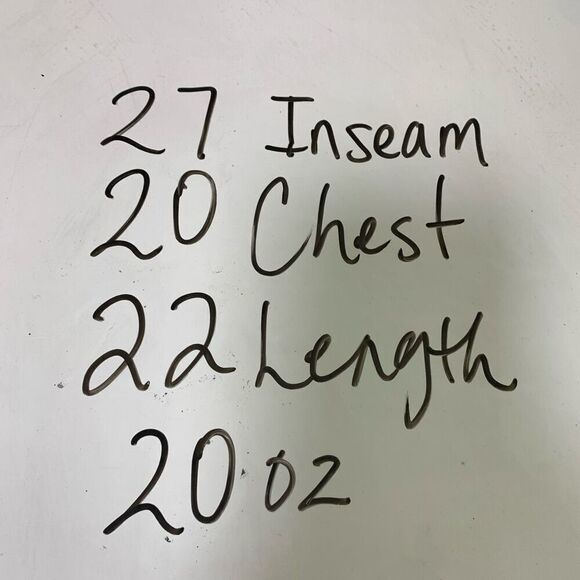 27 Inseam
20 Chest
22 Length
20 oz